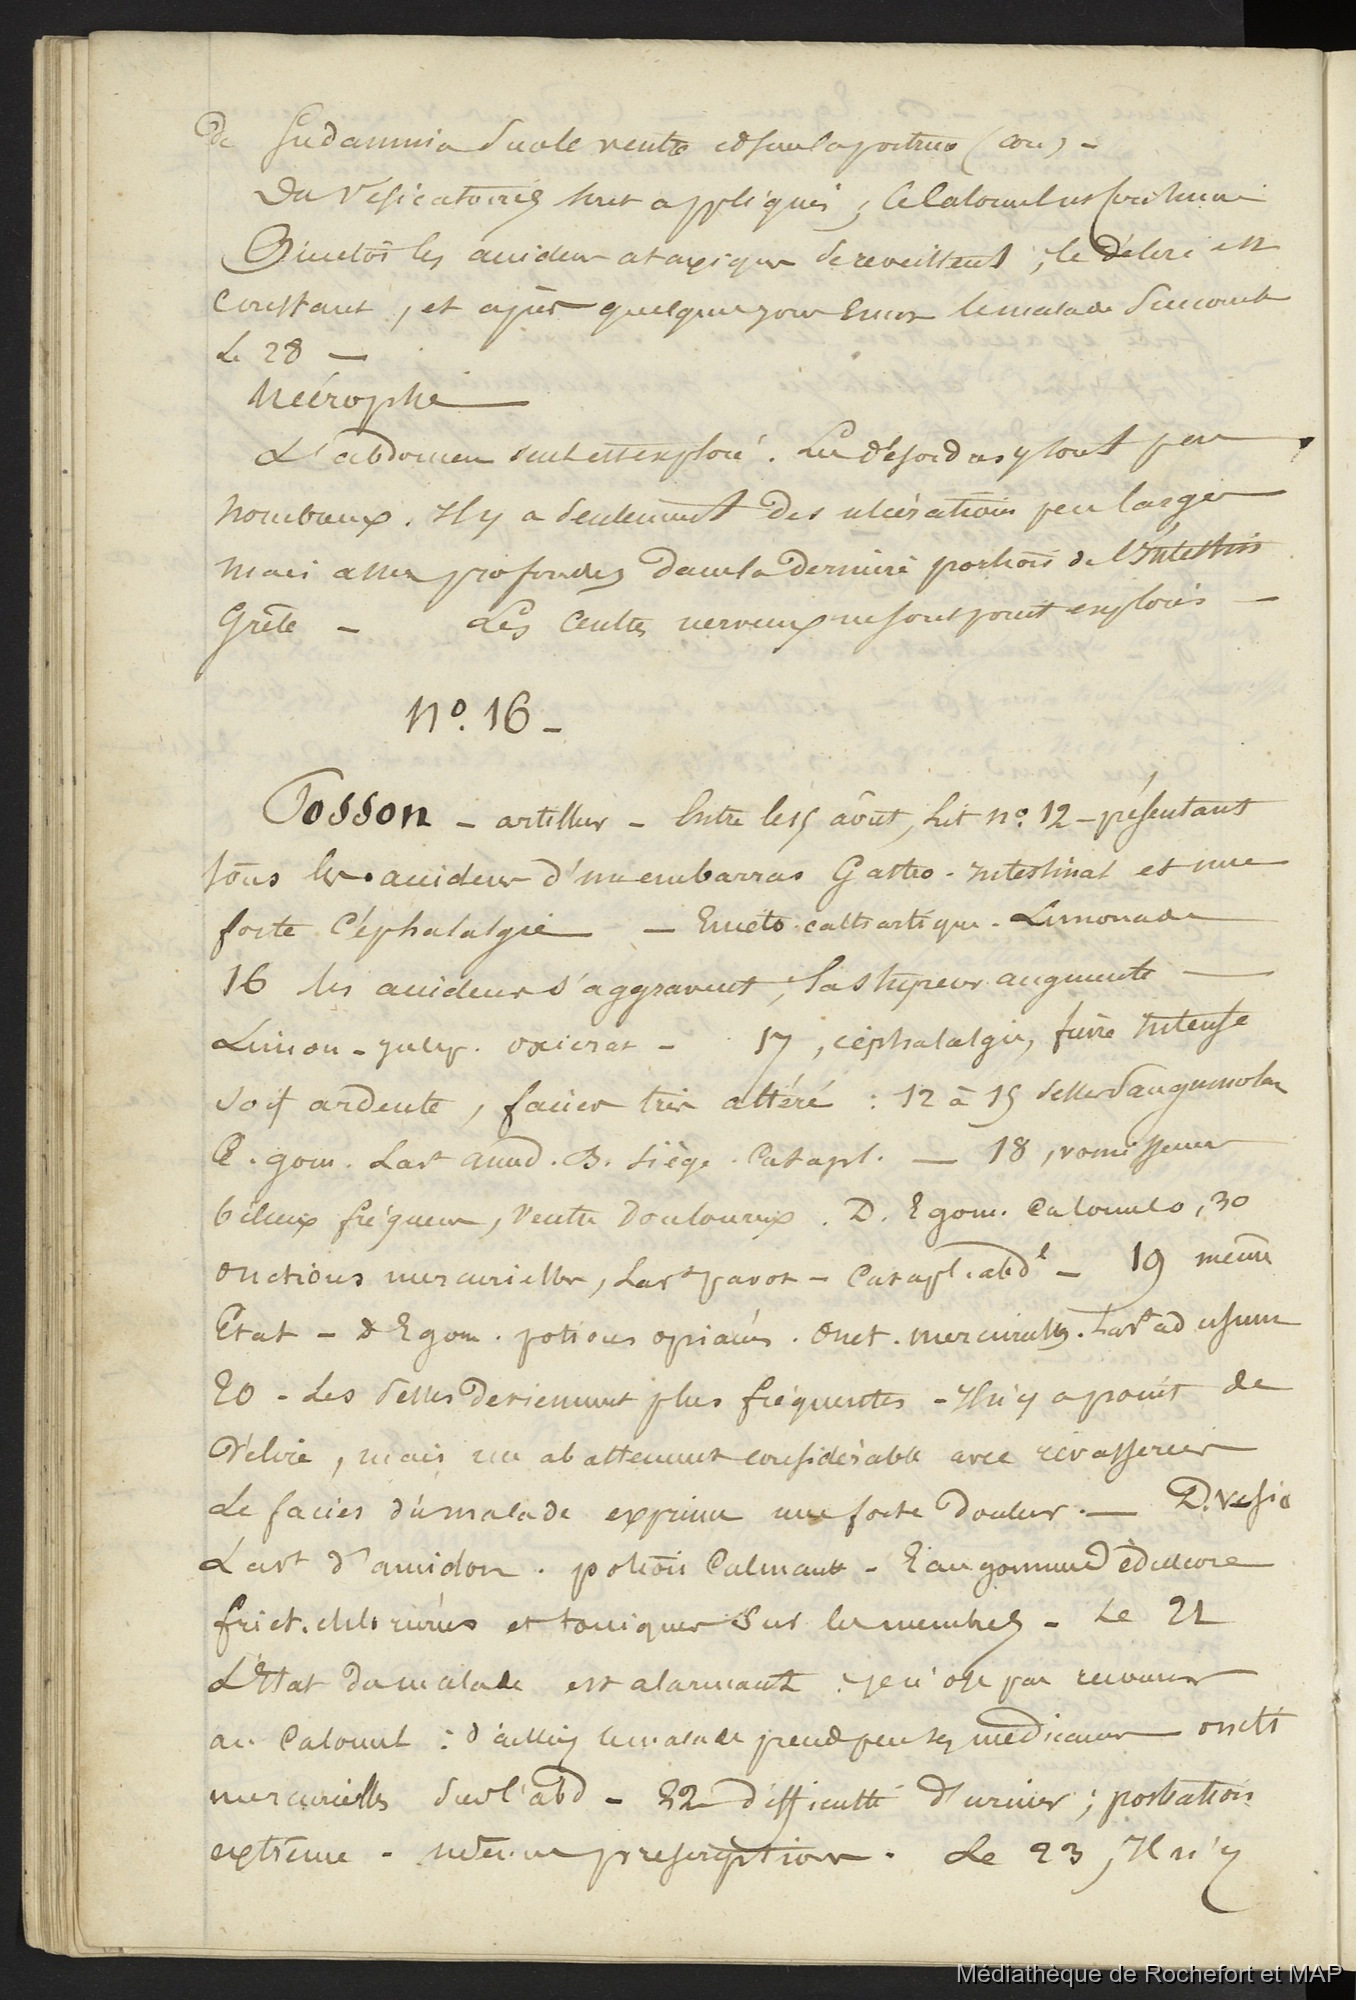 De Sudamina sur le ventre et sur la poitrine (cou) -
Des vésicatoires sont appliqués, le Calomel est continué
Bientôt les accidens ataxiques se réveillent ; le délire est
constant, et après quelques jours encor le malade succombe
Le 28 —
Nécropsie
L'abdomen seul est exploré. Les désordres y sont peu
nombreux. Il y a seulement des ulcérations peu larges
mais assez profondes dans la dernière portion de l'Intestin
Grêle - Les Centres nerveux ne sont point explorés —
N.º 16 -
Posson - artilleur - Entré le 15 août, Lit n.º 12 - présentant
tous les accidens d'un embarras Gastro-intestinal et une
forte Céphalalgie — Emeto cathartique. Limonade
16 les accidens s'aggravent, la stupeur augmente —
Limon - julep. oxicrat - 17, céphalalgie, fièvre intense
soif ardente, facies très altéré : 12 à 15 selles sanguinolen
E. gom. Lavt amid. B. siège. Catapl. — 18, vomissemens
bilieux fréquens, ventre douloureux. D. E gom. Calomelo, 30
onctions mercurielles, Lavt pavot - Catapl. abdl - 19 même
Etat - D E gom. potions opiacées. Onct. mercurielles. Lavt ad usum
20 - Les selles deviennent plus fréquentes - Il n'y a point de
Délire, mais un abattement considérable avec rêvasseries
Le facies du malade exprime une forte douleur. — D. vesic
Lavt d'amidon. potion Calmante - Eau gommée édulcorée
frict. chlorurées et toniques sur les membres - Le 21
L'Etat du malade est alarmant : je n'ose pas recourir
au Calomel : d'ailleurs le malade prend peu ses médicamens oncts
mercurielles sur l'abd - 22 difficulté d'uriner ; prostration
extrême - même prescription. Le 23, Il n'y
Médiathèque de Rochefort et MAP